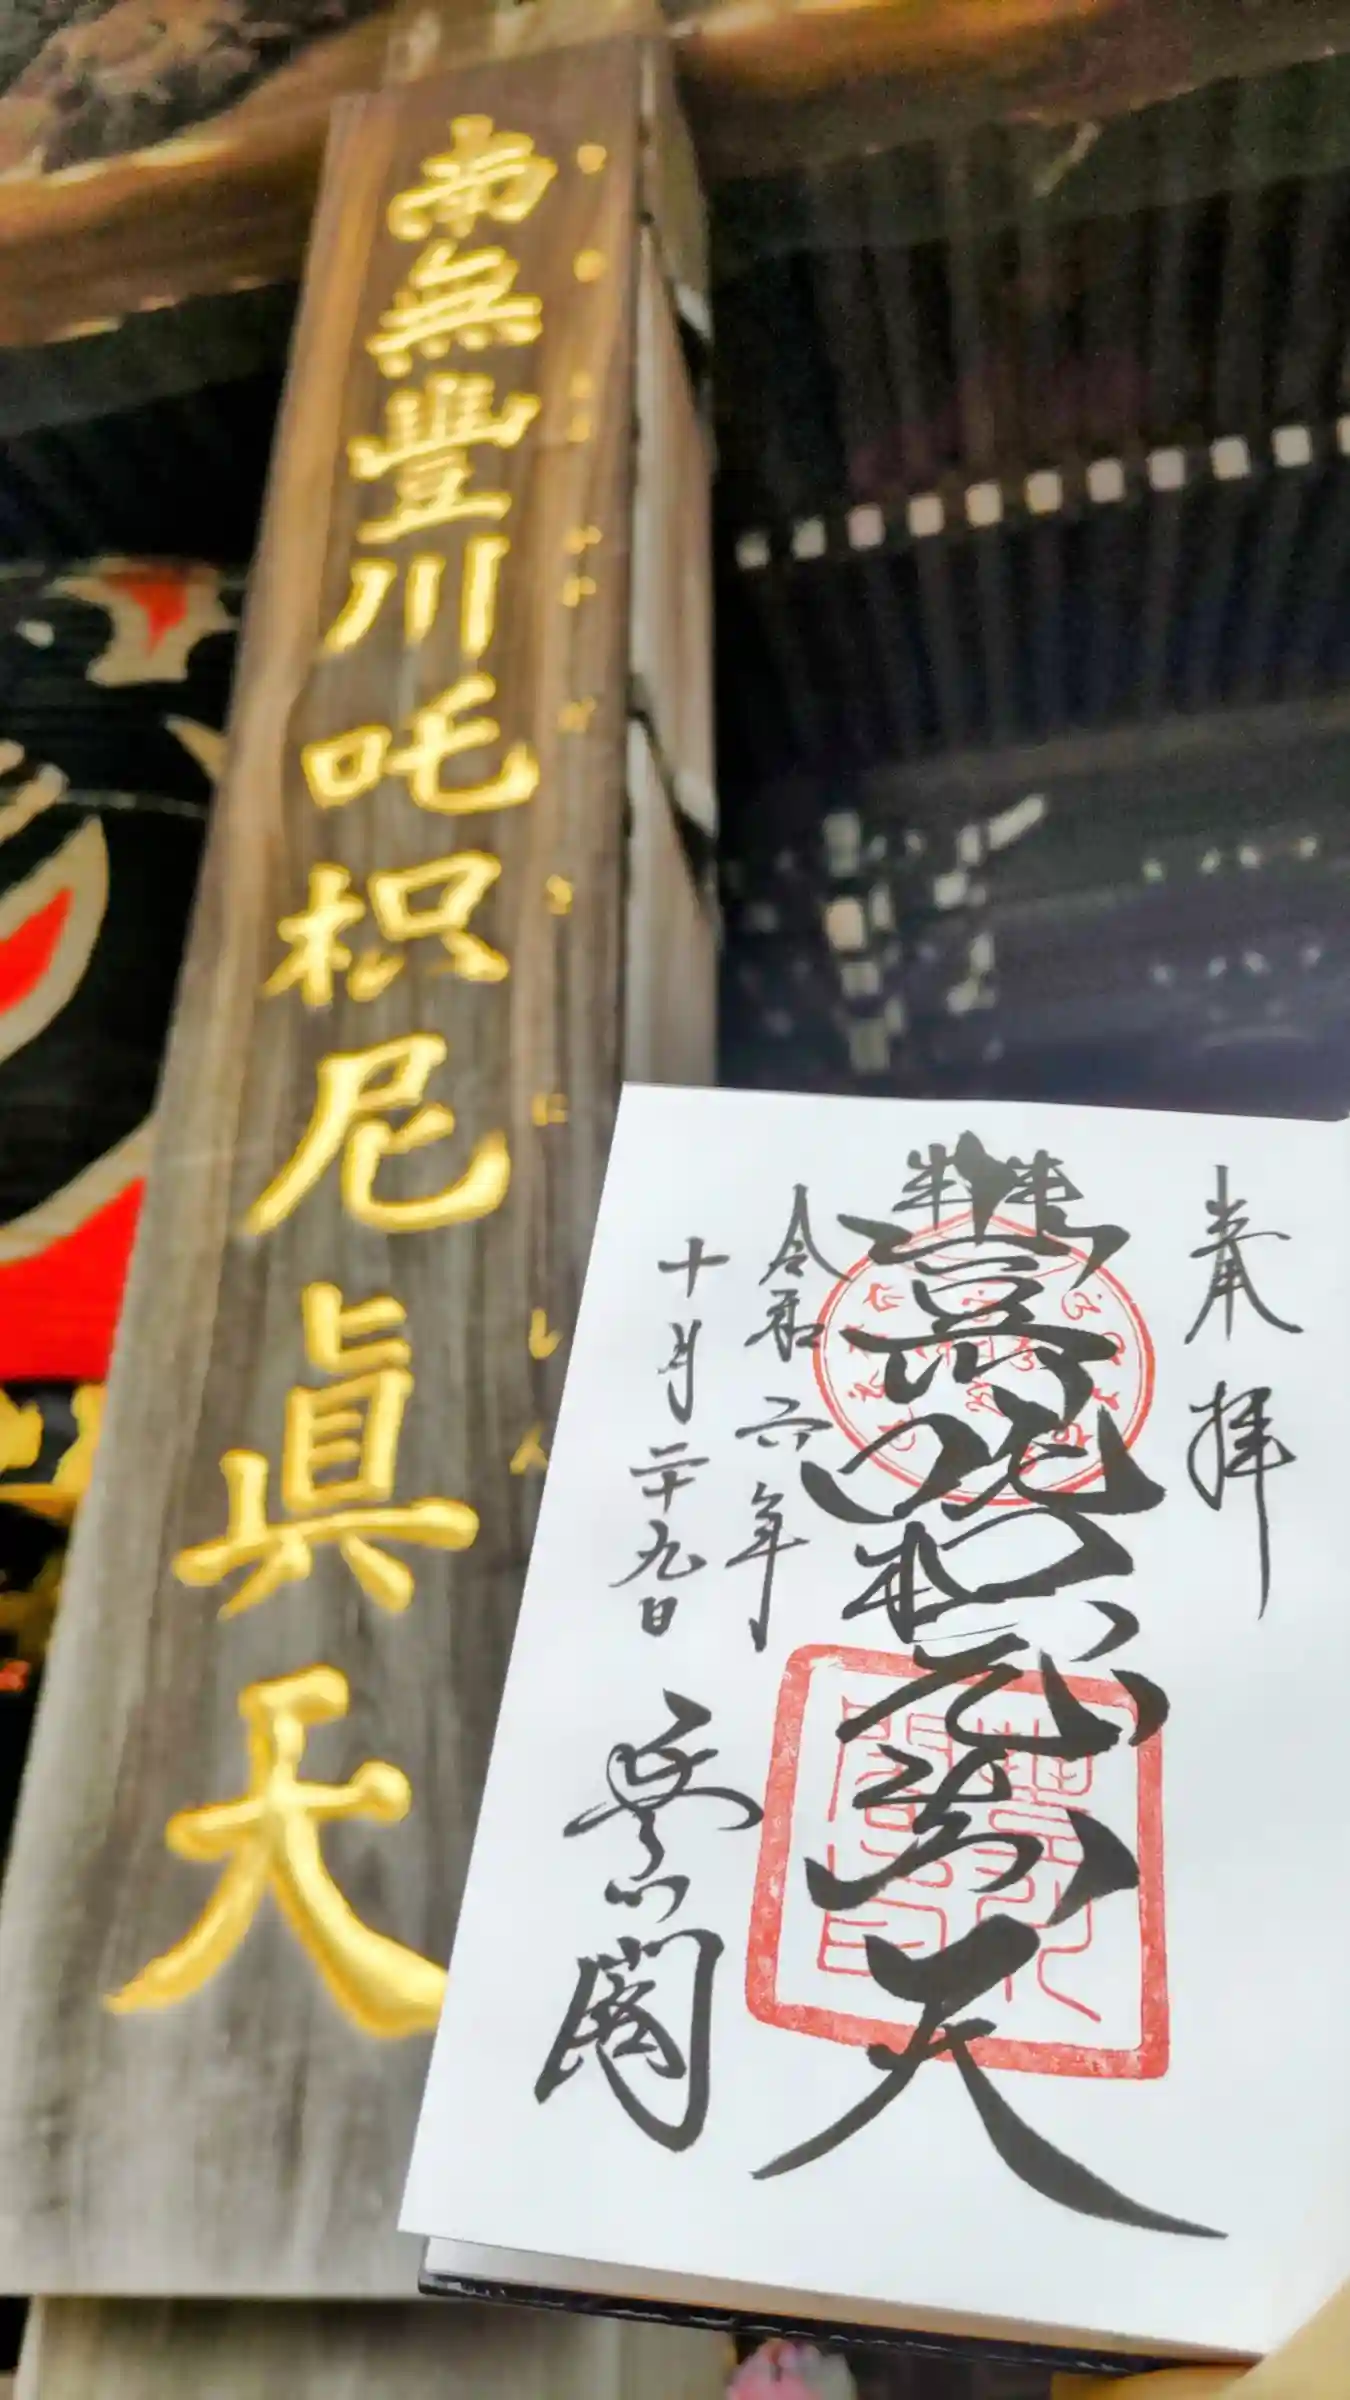 南無豐川吒枳尼眞天
奉拝
豐川吒枳尼眞天
令和六年
十月二十九日
豊川閣